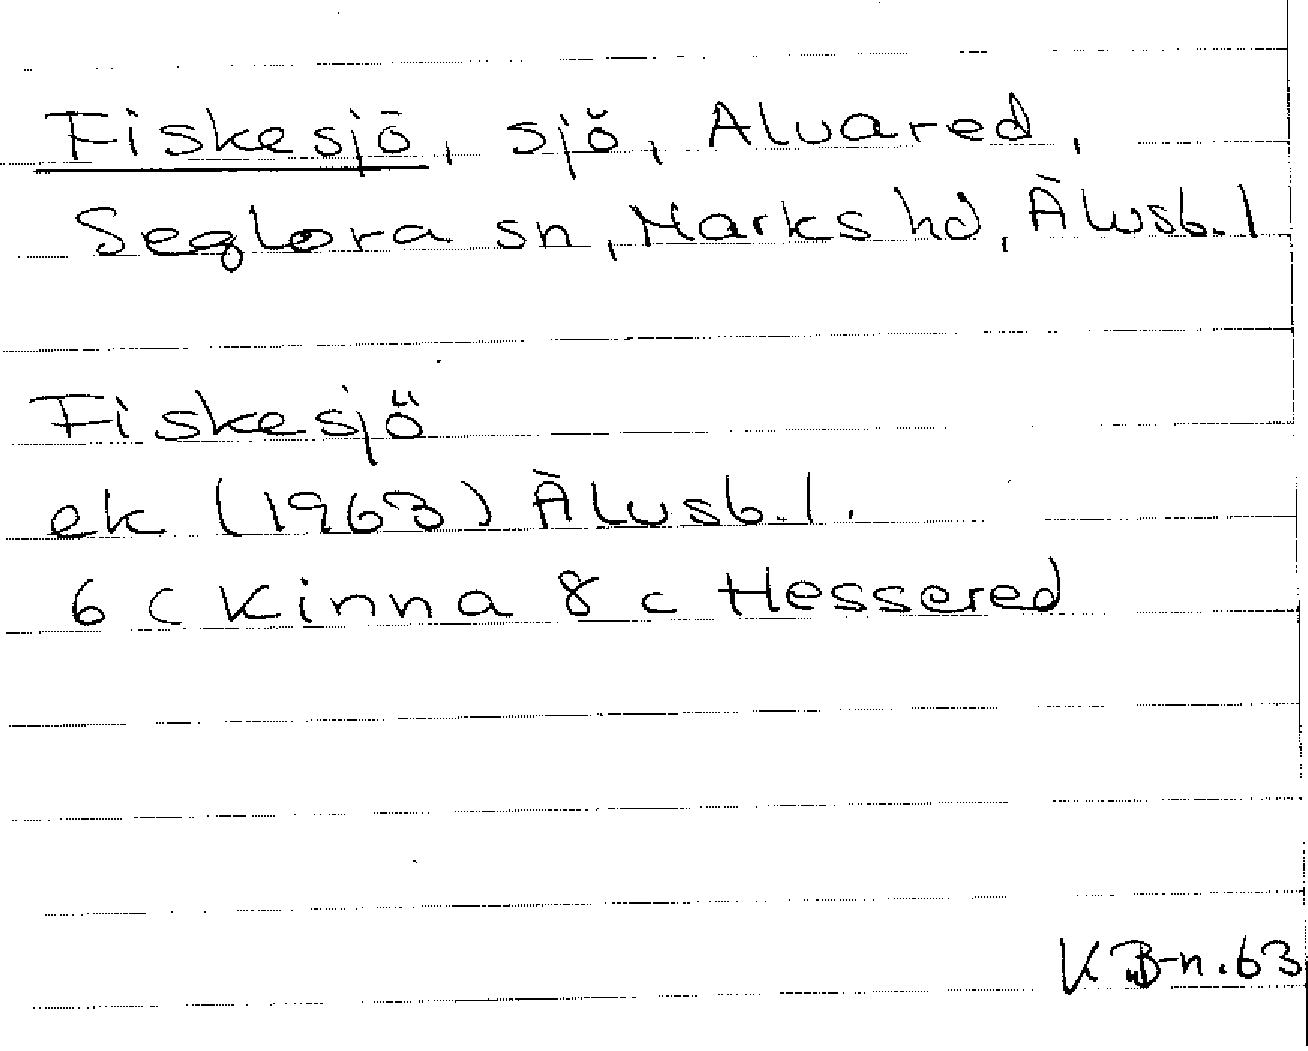 Fiskesjö, sjö, Alvared,
Seglora sn, Marks hd, Älvsb. l
Fiskesjö
ek (1963) Älvsb. l.
6 c Kinna 8 c Hessered
K B-n. 63